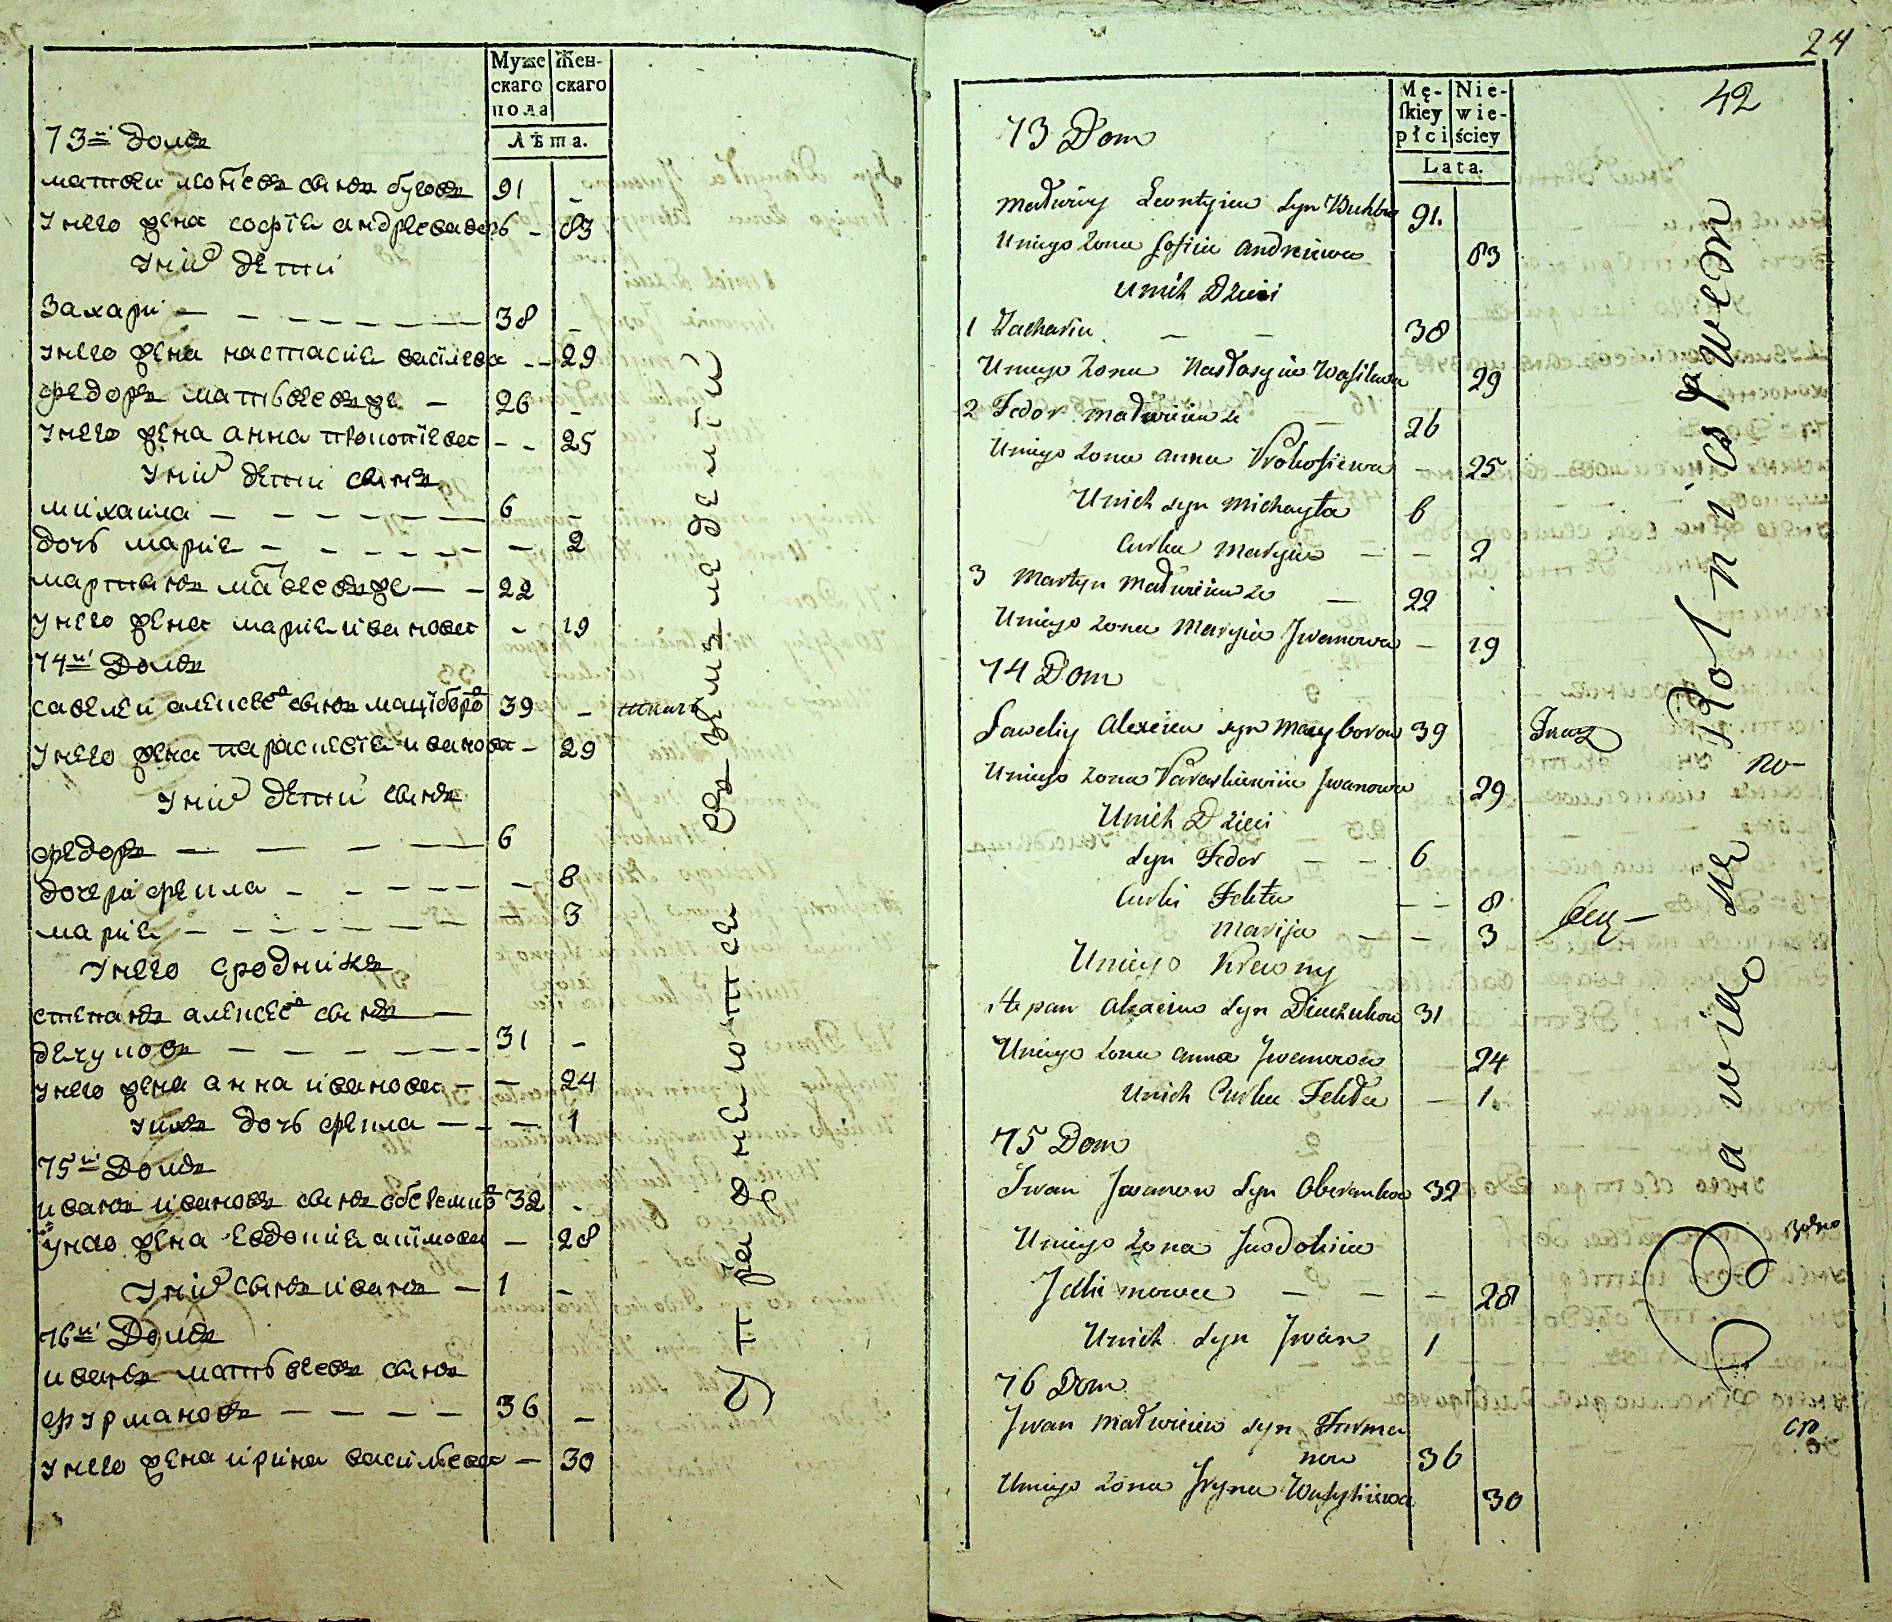 Муже
скаго
пола
Жен-
скаго
Лѣта.
73й домъ
матвеи леонтьевъ сынъ буговъ 91 -
унего жена софїя андреева дочь - 83
униⷯ дети
Захарїй - 38 -
унего жена настасия василева - 29
федоръ матвѣевъ же - 26 -
унего жена анна прокопїева - - 25
униⷯ дети сынъ
михаила - 6 -
дочь мария - - 2
мартынъ матвеевъ же - 22
унего жена мария иванова - 19
74й Домъ
савелеи алексеевъ сынъ мацїборовъ 39 -
унего жена параскевїя иванова - 29
униⷯ дети сынъ
федоръ - 6
дочери фекла - - 8
мария - - 3
унего сродникъ
степанъ алексеевъ сынъ
дечуковъ - 31 -
унего жена анна иванова - - 24
унихъ дочь фекла - - 1
75й Домъ
иванъ ивановъ сынъ 32 -
унего жена евдокия - 28
униⷯ сынъ иванъ - 1 -
76й Домъ
иванъ матьвеевъ сынъ
фурмановъ - 36 -
унего жена ирина васильева - 30
упражднеються въ земледелїи
24
42
Mę-
skiey
płci
Nie-
wie-
ściey
Lata.
73 Dom
Matwiey Leontyiew syn 91.
Uniego żona Sofiia Andreiewa 83
Unich Dzieci
1 Zacharia - - 38
Uniego żona Nastasyia Wasilewa 29
2 Fedor Matwiiew że - 26
Uniego żona Anna Prokofiewa - 25
Unich syn Michayła 6
Curka Maryia - - 2
3 Martyn Matwieiew że - 22
Uniego żona Maryia Jwanowa - 19
74 Dom
Saweliy Alexeiew syn Macyborow 39
Uniego żona Paraskiewiia Jwanowa 29
Unich Dzieci
syn Fedor - - 6
Curki Fekła - - 8
Marija - - 3
Uniego Krewny
Stepan Alexeiew syn Dieczukow 31
Uniego żona Anna Jwanowa 24
Unich Curka Fekła - 1.
75 Dom
Iwan Jwanow syn 32
Uniego żona Jwdokiia
Jakimowa - - - 28
Unich syn Jwan 1
76 Dom
Jwan Matwieiew syn Furma
now 36
Uniego żona Jryna Wasyliewa 30
Bawią się Rolnictwem